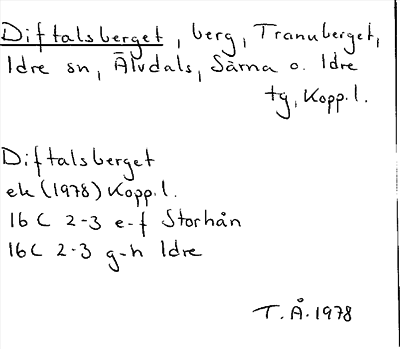 Diftalsberget, berg, Tranuberget,
Idre sn, Älvdals, Särna o. Idre
tg, Kopp.l.
Diftalsberget
ek (1978) Kopp.l.
16C 2-3 e-f Storhån
16C 2-3 g-h Idre
T.Å. 1978